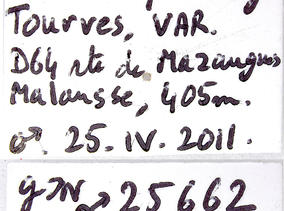 Tourves, VAR.
D64 rte de Mazaugues
Malausse, 405m.
♂. 25. IV. 2011.
♂ 25662